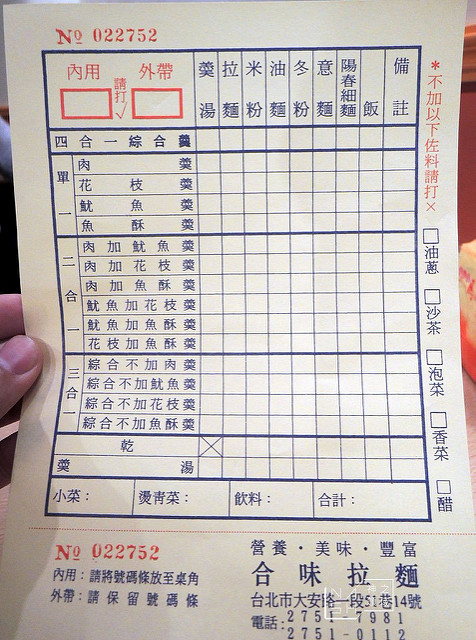 № 022752
內用 請打✓ 外帶
羹湯 拉麵 米粉 油麵 冬粉 意麵 陽春細麵 飯 備註
四合一綜合羹
單一
肉羹
花枝羹
魷魚羹
魚酥羹
二合一
肉加魷魚羹
肉加花枝羹
肉加魚酥羹
魷魚加花枝羹
魷魚加魚酥羹
花枝加魚酥羹
三合一
綜合不加肉羹
綜合不加魷魚羹
綜合不加花枝羹
綜合不加魚酥羹
乾
羹湯
小菜： 燙青菜： 飲料： 合計：
*不加以下佐料請打×
□油蔥
□沙茶
□泡菜
□香菜
□醋
№ 022752
內用：請將號碼條放至桌角
外帶：請保留號碼條
營養・美味・豐富
合味拉麵
台北市大安路一段51巷14號
電話：2751-7981
2751-0112